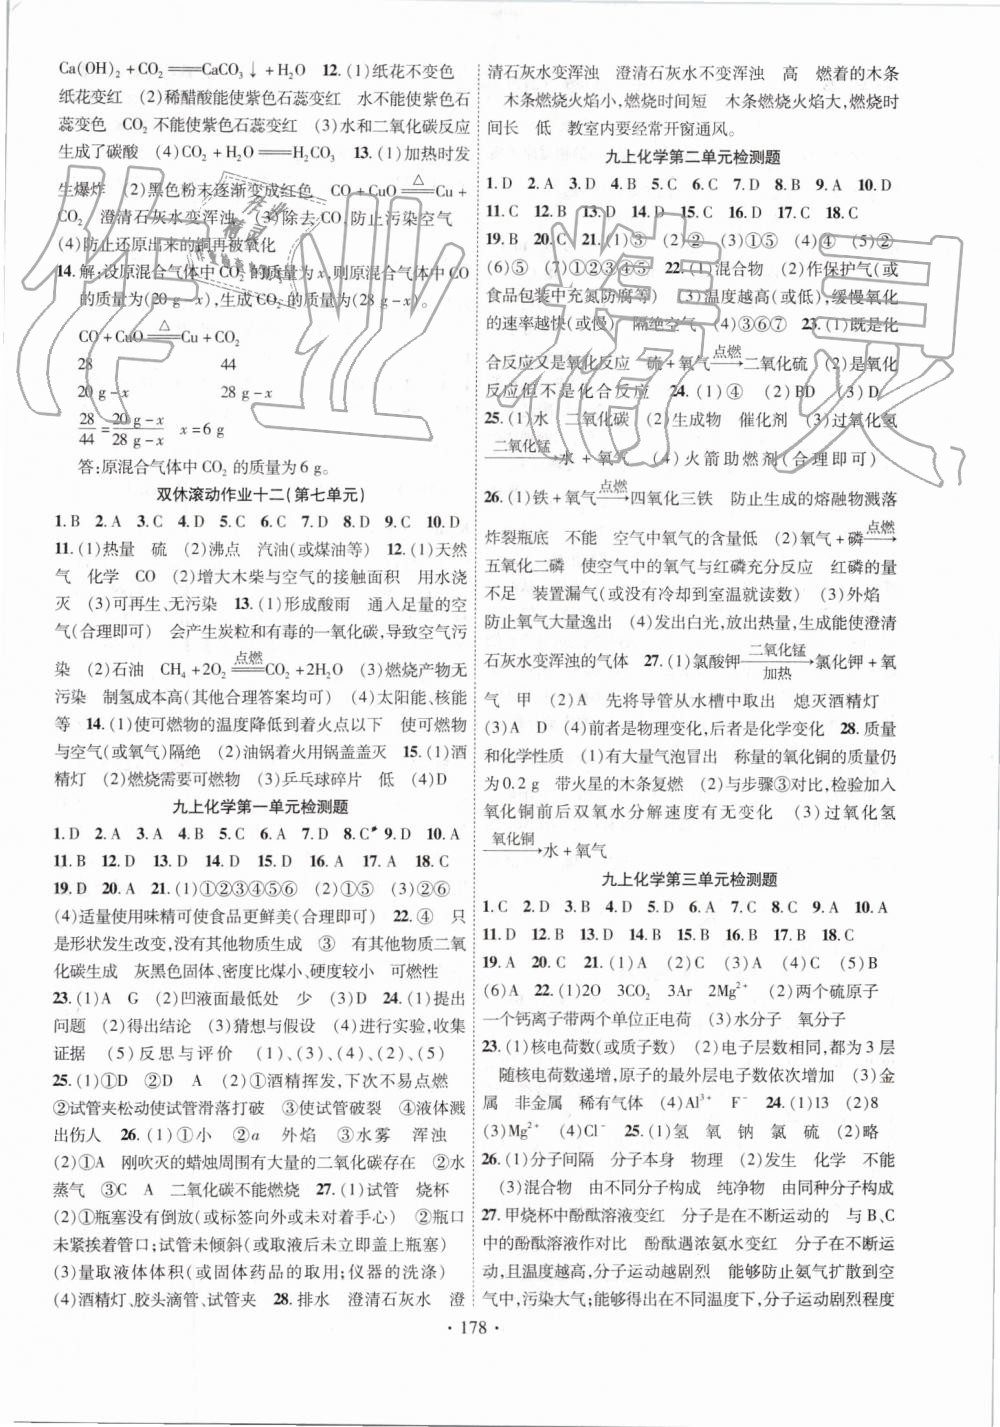 Ca(OH)₂+CO₂══CaCO₃↓+H₂O 12.(1)纸花不变色
纸花变红 (2)稀醋酸能使紫色石蕊变红 水不能使紫色石
蕊变色 CO₂不能使紫色石蕊变红 (3)水和二氧化碳反应
生成了碳酸 (4)CO₂+H₂O══H₂CO₃ 13.(1)加热时发
生爆炸 (2)黑色粉末逐渐变成红色 CO+CuO═△═Cu+
CO₂ 澄清石灰水变浑浊 (3)除去CO,防止污染空气
(4)防止还原出来的铜再被氧化
14.解:设原混合气体中CO₂的质量为x,则原混合气体中CO
的质量为(20 g-x),生成CO₂的质量为(28 g-x)。
CO+CuO═△═Cu+CO₂
28 44
20 g-x 28 g-x
28/44=(20 g-x)/(28 g-x) x=6 g
答:原混合气体中CO₂的质量为6 g。
双休滚动作业十二(第七单元)
1.B 2.A 3.C 4.D 5.C 6.C 7.D 8.D 9.C 10.D
11.(1)热量 硫 (2)沸点 汽油(或煤油等) 12.(1)天然
气 化学 CO (2)增大木柴与空气的接触面积 用水浇
灭 (3)可再生、无污染 13.(1)形成酸雨 通入足量的空
气(合理即可) 会产生炭粒和有毒的一氧化碳,导致空气污
染 (2)石油 CH₄+2O₂═点燃═CO₂+2H₂O (3)燃烧产物无
污染 制氢成本高(其他合理答案均可) (4)太阳能、核能
等 14.(1)使可燃物的温度降低到着火点以下 使可燃物
与空气(或氧气)隔绝 (2)油锅着火用锅盖盖灭 15.(1)酒
精灯 (2)燃烧需要可燃物 (3)乒乓球碎片 低 (4)D
九上化学第一单元检测题
1.D 2.A 3.A 4.B 5.C 6.A 7.D 8.C 9.D 10.A
11.B 12.D 13.D 14.D 15.D 16.A 17.A 18.C
19.D 20.A 21.(1)①②③④⑤⑥ (2)①⑤ (3)②⑥
(4)适量使用味精可使食品更鲜美(合理即可) 22.④ 只
是形状发生改变,没有其他物质生成 ③ 有其他物质二氧
化碳生成 灰黑色固体、密度比煤小、硬度较小 可燃性
23.(1)A G (2)凹液面最低处 少 (3)D 24.(1)提出
问题 (2)得出结论 (3)猜想与假设 (4)进行实验,收集
证据 (5)反思与评价 (1)、(3)、(4)、(2)、(5)
25.(1)①D ②D A (2)①酒精挥发,下次不易点燃
②试管夹松动使试管滑落打破 ③使试管破裂 ④液体溅
出伤人 26.(1)①小 ②a 外焰 ③水雾 浑浊
(2)①A 刚吹灭的蜡烛周围有大量的二氧化碳存在 ②水
蒸气 ③C A 二氧化碳不能燃烧 27.(1)试管 烧杯
(2)①瓶塞没有倒放(或标签向外或未对着手心) ②瓶口
未紧挨着管口;试管未倾斜(或取液后未立即盖上瓶塞)
(3)量取液体体积(或固体药品的取用;仪器的洗涤)
(4)酒精灯、胶头滴管、试管夹 28.排水 澄清石灰水 澄
清石灰水变浑浊 澄清石灰水不变浑浊 高 燃着的木条
木条燃烧火焰小,燃烧时间短 木条燃烧火焰大,燃烧时
间长 低 教室内要经常开窗通风。
九上化学第二单元检测题
1.D 2.A 3.D 4.B 5.C 6.C 7.D 8.B 9.A 10.D
11.C 12.B 13.D 14.D 15.A 16.C 17.C 18.C
19.B 20.C 21.(1)③ (2)② (3)①⑤ (4)④ (5)②
(6)⑤ (7)①②③④⑤ 22.(1)混合物 (2)作保护气(或
食品包装中充氮防腐等) (3)温度越高(或低),缓慢氧化
的速率越快(或慢) 隔绝空气 (4)③⑥⑦ 23.(1)既是化
合反应又是氧化反应 硫+氧气—点燃→二氧化硫 (2)是氧化
反应但不是化合反应 24.(1)④ (2)BD (3)D
25.(1)水 二氧化碳 (2)生成物 催化剂 (3)过氧化氢
—二氧化锰→水+氧气 (4)火箭助燃剂(合理即可)
26.(1)铁+氧气—点燃→四氧化三铁 防止生成的熔融物溅落
炸裂瓶底 不能 空气中氧气的含量低 (2)氧气+磷—点燃→
五氧化二磷 使空气中的氧气与红磷充分反应 红磷的量
不足 装置漏气(或没有冷却到室温就读数) (3)外焰
防止氧气大量逸出 (4)发出白光,放出热量,生成能使澄清
石灰水变浑浊的气体 27.(1)氯酸钾—二氧化锰/加热→氯化钾+氧
气 甲 (2)A 先将导管从水槽中取出 熄灭酒精灯
(3)A D (4)前者是物理变化,后者是化学变化 28.质量
和化学性质 (1)有大量气泡冒出 称量的氧化铜的质量仍
为0.2 g 带火星的木条复燃 (2)与步骤③对比,检验加入
氧化铜前后双氧水分解速度有无变化 (3)过氧化氢
—氧化铜→水+氧气
九上化学第三单元检测题
1.C 2.D 3.B 4.D 5.A 6.A 7.C 8.C 9.A 10.A
11.D 12.B 13.D 14.B 15.B 16.D 17.B 18.C
19.A 20.C 21.(1)D (2)A (3)A (4)C (5)B
(6)A 22.(1)2O 3CO₂ 3Ar 2Mg²⁺ (2)两个硫原子
一个钙离子带两个单位正电荷 (3)水分子 氧分子
23.(1)核电荷数(或质子数) (2)电子层数相同,都为3层
随核电荷数递增,原子的最外层电子数依次增加 (3)金
属 非金属 稀有气体 (4)Al³⁺ F⁻ 24.(1)13 (2)8
(3)Mg²⁺ (4)Cl⁻ 25.(1)氢 氧 钠 氯 硫 (2)略
26.(1)分子间隔 分子本身 物理 (2)发生 化学 不能
(3)混合物 由不同分子构成 纯净物 由同种分子构成
27.甲烧杯中酚酞溶液变红 分子是在不断运动的 与B、C
中的酚酞溶液作对比 酚酞遇浓氨水变红 分子在不断运
动,且温度越高,分子运动越剧烈 能够防止氨气扩散到空
气中,污染大气;能够得出在不同温度下,分子运动剧烈程度
• 178 •
作业精灵